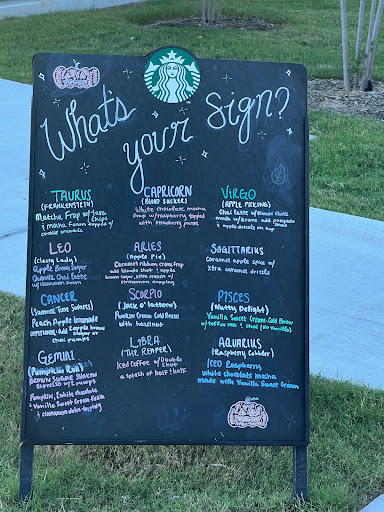 What's your Sign?
TAURUS
(FRANKENSTEIN)
Matcha Frap w/ Java
Chips
& mocha. Foam topped w/
cookie crumble
CAPRICORN
(BLOOD SUCKER)
White chocolate mocha
Frap w/ raspberry topped
with strawberry puree
VIRGO
(APPLE PICKING)
Chai latte w/ Blonde Shots
made w/ Brown
& apple drizzle on top
LEO
(Classy Lady)
Apple Brown Sugar
Oatmilk Chai latte
w/ cinnamon powder
ARIES
(Apple Pie)
Caramel ribbon crème frap
add blonde shot, apple
brown sugar, extra crunch w/
cinnamon dapping
SAGITTARIUS
Caramel apple spice w/
xtra caramel drizzle
CANCER
(Summer Time Sadness)
Peach Apple lemonade
Optional add apple brown
Sugar or
Chai pumps
SCORPIO
(Jack o' lantern)
Pumpkin Cream Cold Brew
with hazelnut
PISCES
(Nutty Delight)
Vanilla Sweet Cream Cold Brew
w/ toffee nut & chai (no vanilla)
GEMINI
(Pumpkin Roll)
Brown Sugar Shaken
espresso w/ 2 pumps
Pumpkin, 2 white chocolate
& Vanilla Sweet Cream Foam
& cinnamon dolce topping
LIBRA
(THE REAPER)
Iced Coffee w/ Double
Shot
a splash of half & half
AQUARIUS
(Raspberry Cobbler)
ICED Raspberry
white chocolate mocha
made with Vanilla Sweet Cream